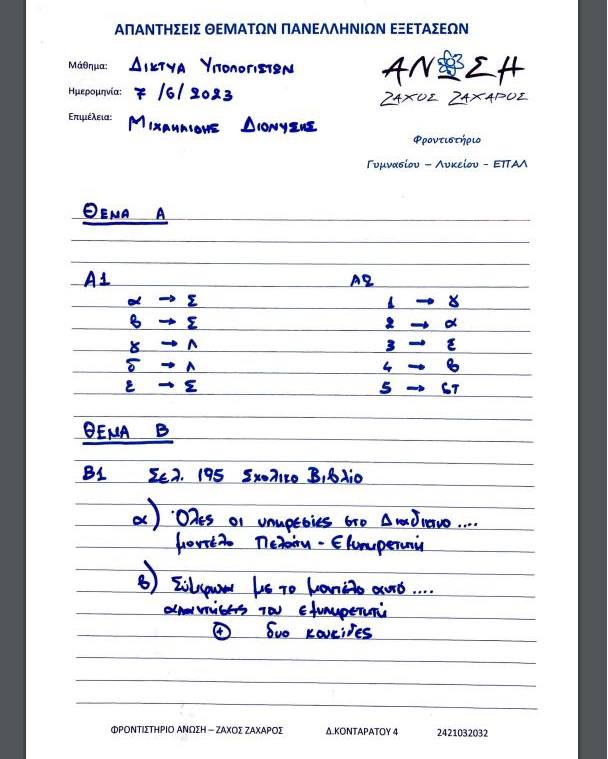 ΑΠΑΝΤΗΣΕΙΣ ΘΕΜΑΤΩΝ ΠΑΝΕΛΛΗΝΙΩΝ ΕΞΕΤΑΣΕΩΝ
Μάθημα: Δικτυα Υπολογιστων
Ημερομηνία: 7/6/2023
Επιμέλεια: Μιχαηλιδης Διονυσης
ΑΝΩΣΗ
ΖΑΧΟΣ ΖΑΧΑΡΟΣ
Φροντιστήριο
Γυμνασίου – Λυκείου - ΕΠΑΛ
Θεμα Α
Α1
α → Σ
β → Σ
γ → Λ
δ → Λ
ε → Σ
Α2
1 → γ
2 → α
3 → ε
4 → β
5 → στ
Θεμα Β
Β1 Σελ. 195 Σχολικο Βιβλιο
α) Όλες οι υπηρεσίες στο Διαδικτυο ....
μοντέλο Πελάτη - Εξυπηρετητή
β) Σύμφωνα με το μοντέλο αυτό ....
απαντήσεις του εξυπηρετητή
⊕ δυο κουκίδες
ΦΡΟΝΤΙΣΤΗΡΙΟ ΑΝΩΣΗ – ΖΑΧΟΣ ΖΑΧΑΡΟΣ Δ.ΚΟΝΤΑΡΑΤΟΥ 4 2421032032